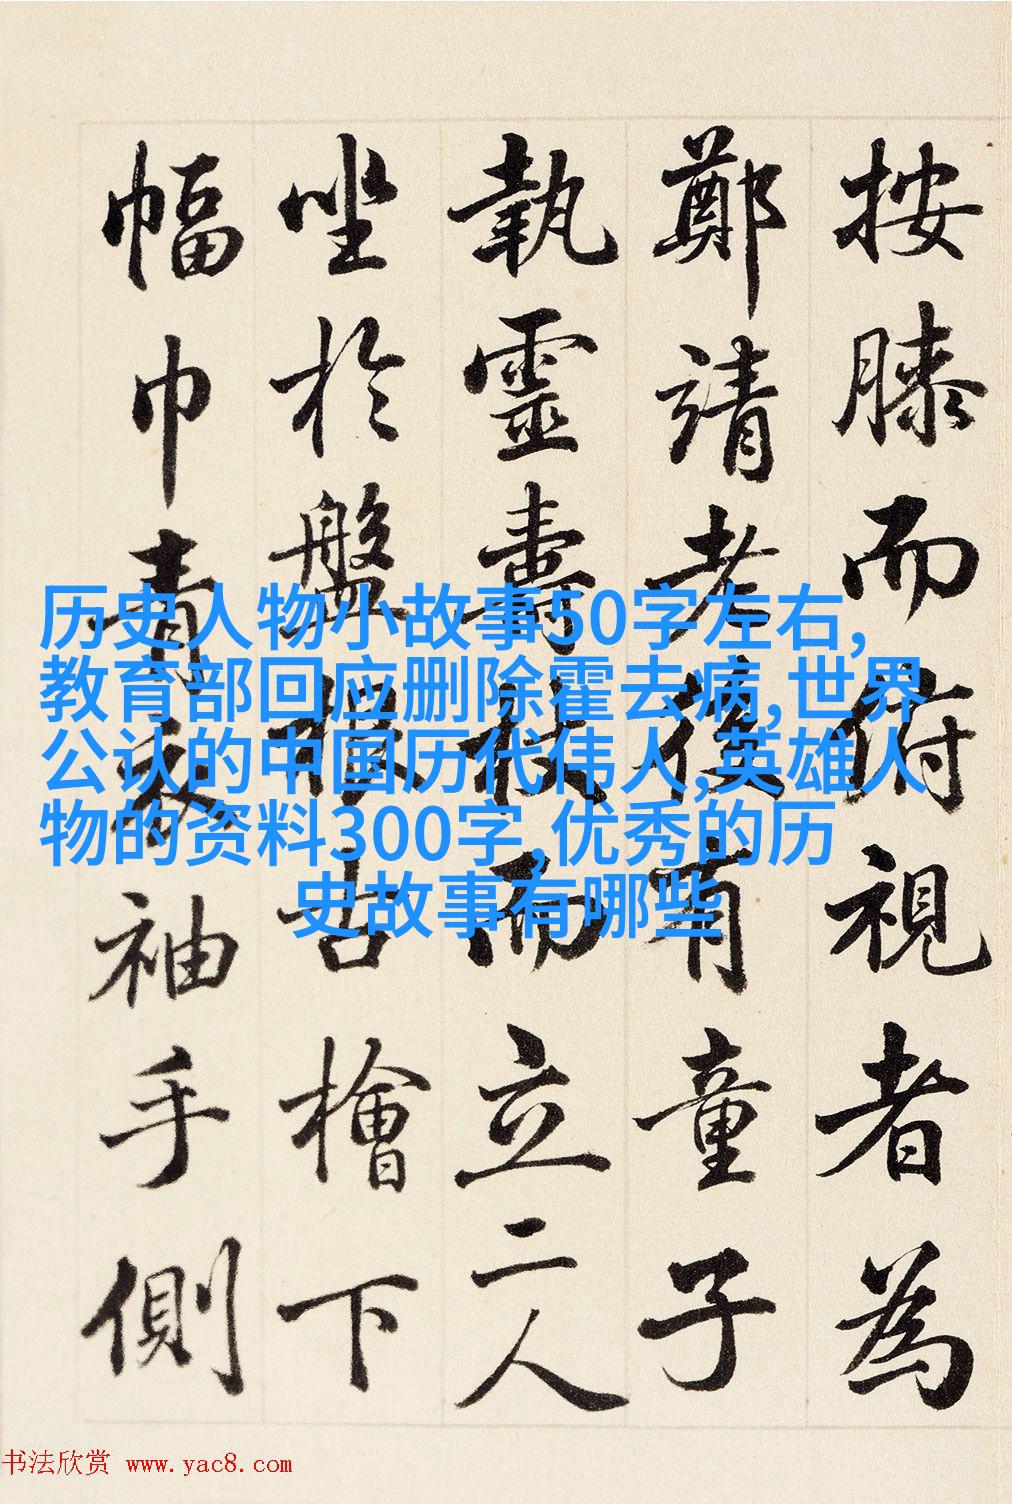 按膝而俯視者為
鄭靖老後有童子
執靈壽杖而立二人
坐於盤根古檜下
幅巾青衣袖手側
历史人物小故事50字左右,
教育部回应删除霍去病,世界
公认的中国历代伟人,英雄人
物的资料300字,优秀的历
史故事有哪些
书法欣赏 www.yac8.com